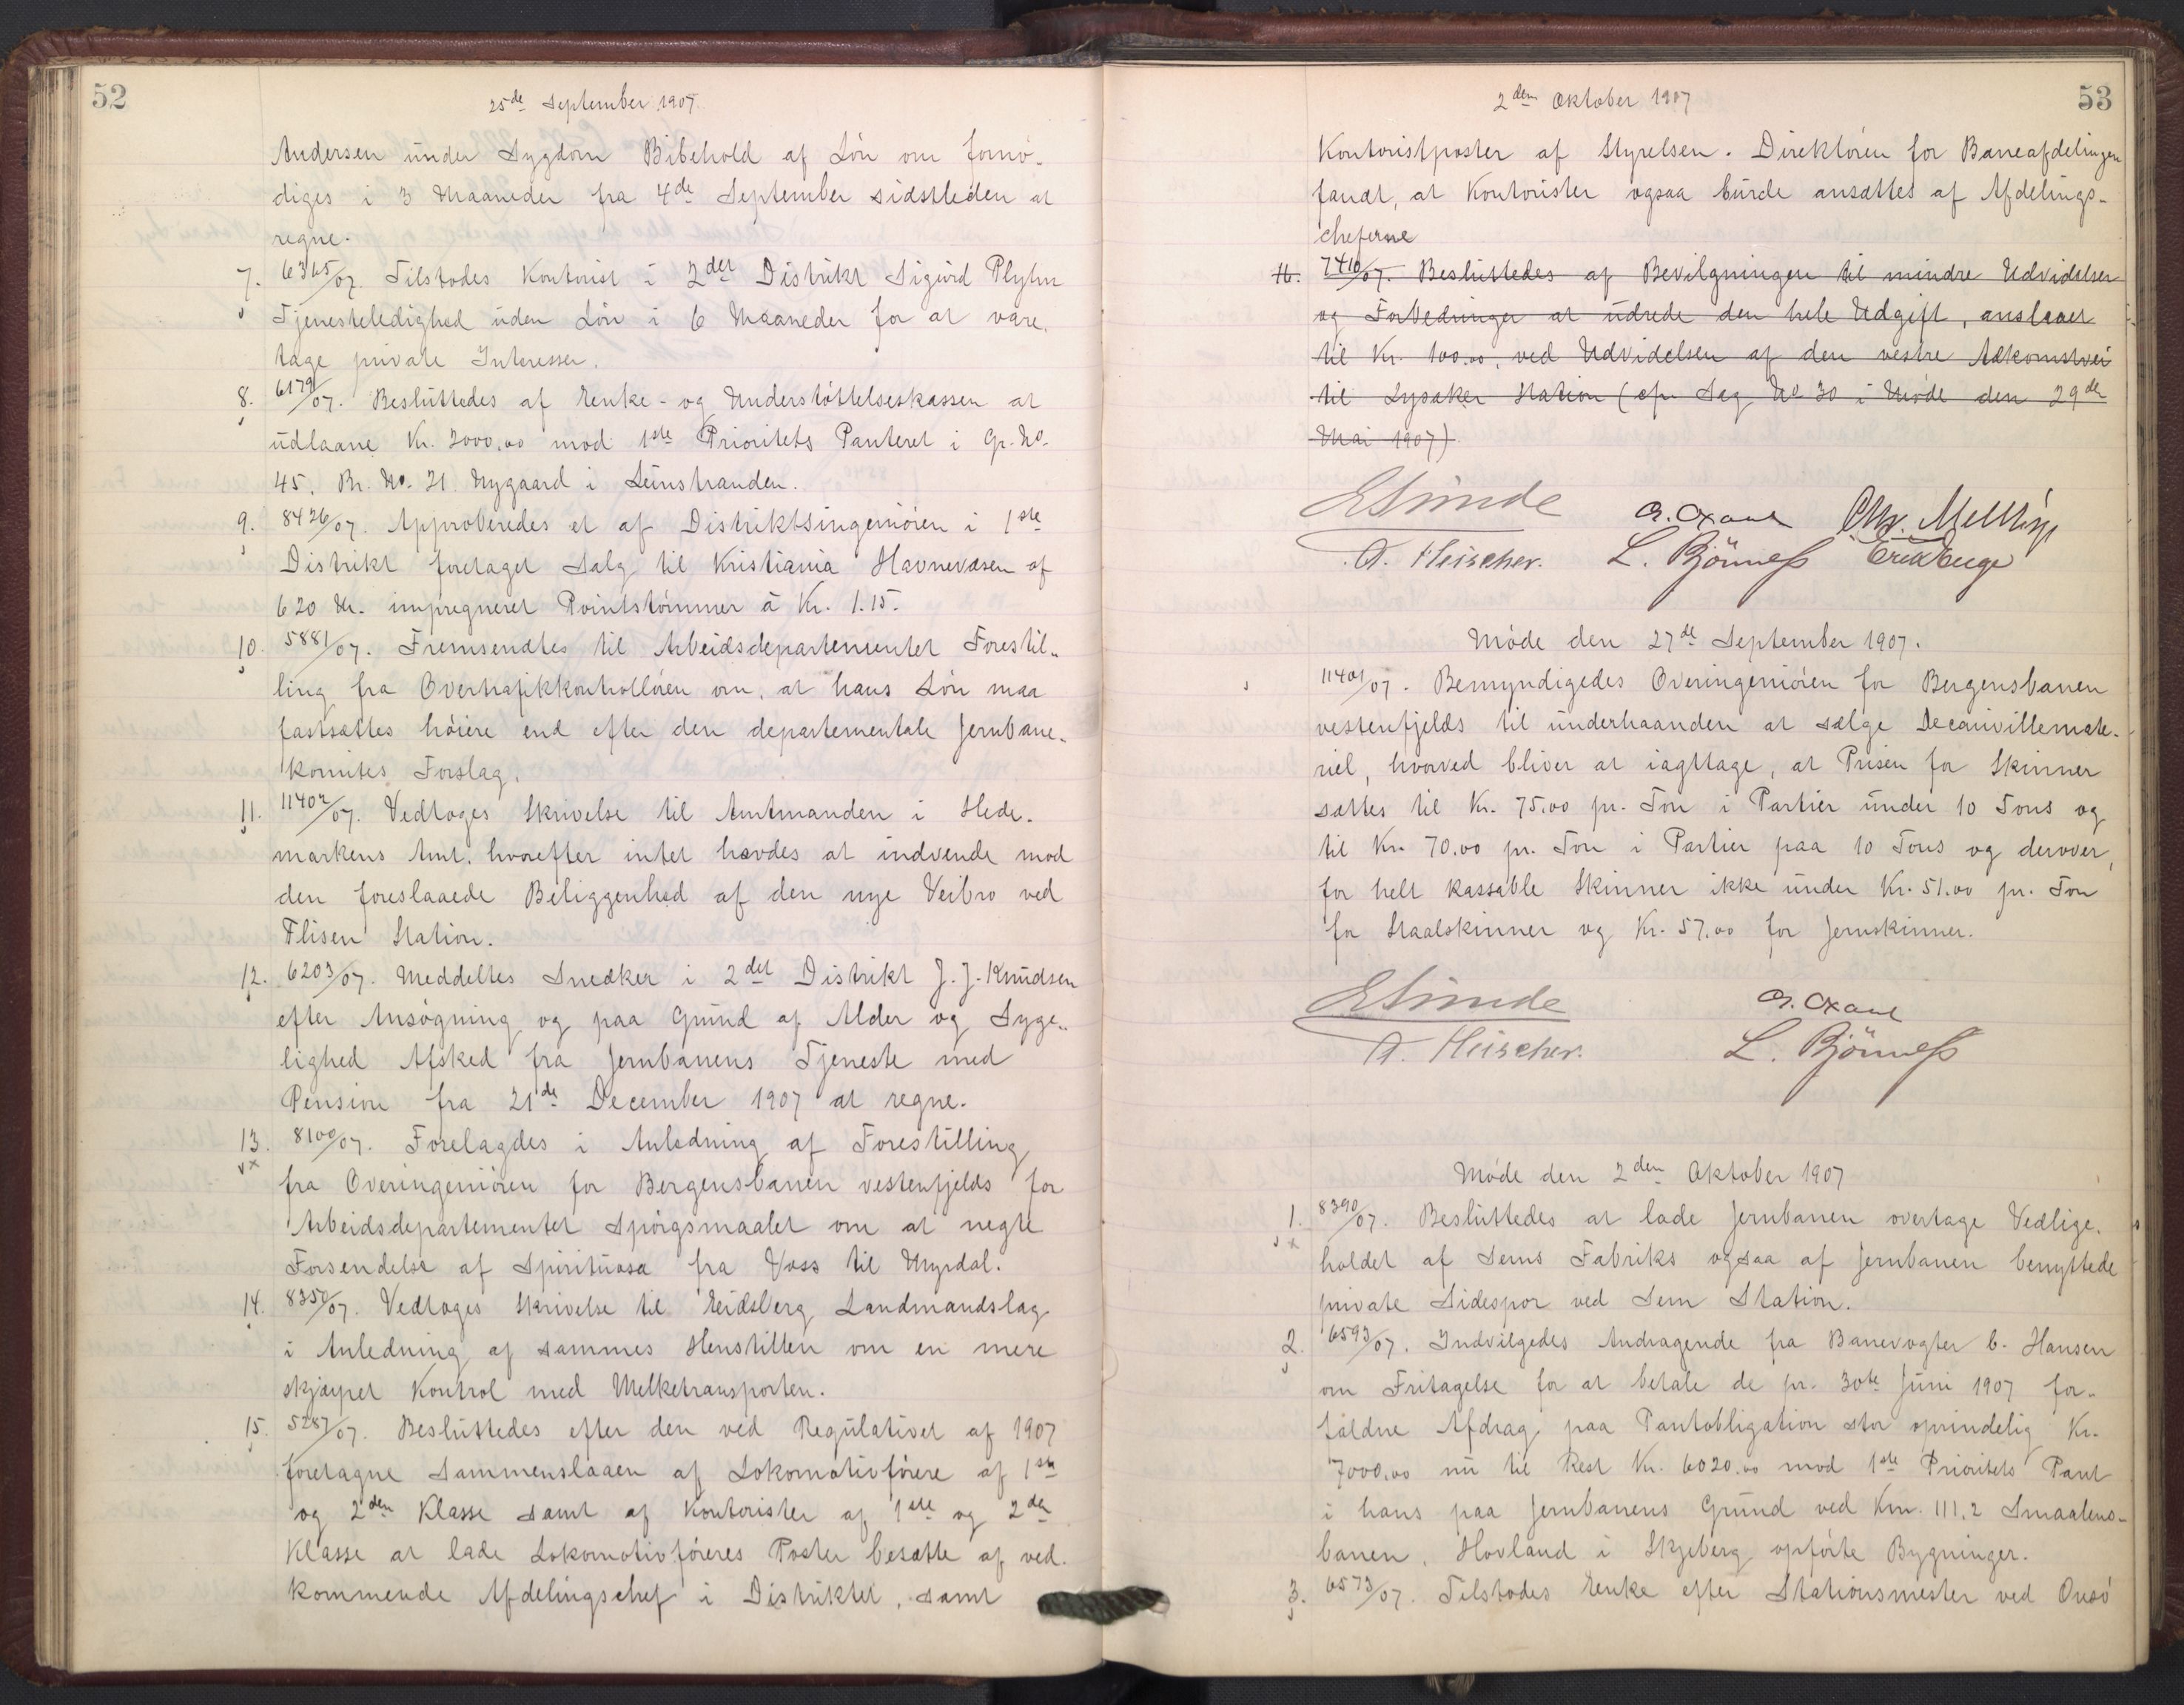 52
25de September 1907.
Andersen under Sygdom Bibehold af Løn om fornø-
diges i 3 Maaneder fra 4de September sidstleden at
regne.
7. 6365/07. Tilstodes Kontorist i 2det Distrikt Sigurd Plyhn
Tjenesteledighed uden Løn i 6 Maaneder for at vare-
tage private Interesser.
8. 6179/07. Besluttedes af Enke- og Understøttelseskassen at
udlaane Kr. 2000,00 mod 1ste Prioritets Panteret i Gr. No.
45. Br. No. 21 Nygaard i Leinstranden.
9. 8426/07. Approberedes et af Distriktsingeniøren i 1ste
Distrikt foretaget Salg til Kristiania Havnevæsen af
620 M. impregneret Pointstømmer á Kr. 1.15.
10. 5881/07. Fremsendtes til Arbeidsdepartementet Forestil-
ling fra Overtrafikkontrolløren om, at hans Løn maa
fastsættes høiere end efter den departementale Jernbane-
komites Forslag.
11. 11402/07. Vedtoges Skrivelse til Amtmanden i Hede-
markens Amt, hvorefter intet havdes at indvende mod
den foreslaaede Beliggenhed af den nye Veibro ved
Flisen Station.
12. 6203/07. Meddeltes Snedker i 2det Distrikt J. J. Knudsen
efter Ansøgning og paa Grund af Alder og Syge-
lighed Afsked fra Jernbanens Tjeneste med
Pension fra 21de December 1907 at regne.
13. 8100/07. Forelagdes i Anledning af Forestilling
fra Overingeniøren for Bergensbanen vestenfjelds for
Arbeidsdepartementet Spørgsmaalet om at negte
Forsendelse af Spirituosa fra Voss til Myrdal.
14. 8350/07. Vedtoges Skrivelse til Eidsberg Landmandslag
i Anledning af sammes Henstillen om en mere
skjærpet Kontrol med Melketransporten.
15. 5287/07. Besluttedes efter den ved Regulativet af 1907
foretagne Sammenslaaen af Lokomotivførere af 1ste
og 2den Klasse samt af Kontorister af 1ste og 2den
Klasse at lade Lokomotivføreres Poster besætte af ved-
kommende Afdelingschef i Distriktet, samt
53
2den Oktober 1907
Kontoristposter af Styrelsen. Direktøren for Baneafdelingen
fandt, at Kontorister ogsaa burde ansættes af Afdelings-
cheferne
16. 7410/07. Besluttedes af Bevilgningen til mindre Udvidelser
og Forbedringer at udrede den hele Udgift, anslaaet
til Kr. 100.00, ved Udvidelsen af den vestre Adkomstvei
til Lysaker Station (cfr. Sag No 30 i Møde den 29de
Mai 1907)
E Sunde
A. Fleischer. L. Bjørness
Møde den 27de September 1907.
11401/07. Bemyndigedes Overingeniøren for Bergensbanen
vestenfjelds til underhaanden at sælge Decauvillemate-
riel, hvorved bliver at iagttage, at Prisen for Skinner
sættes til Kr. 75.00 pr. Ton i Partier under 10 Tons og
til Kr. 70.00 pr. Ton i Partier paa 10 Tons og derover,
for helt kassable Skinner ikke under Kr. 51.00 pr. Ton
for Staalskinner og Kr. 57.00 for Jernskinner.
E Sunde
A. Fleischer. L. Bjørness
Møde den 2den Oktober 1907
1. 8390/07. Besluttedes at lade Jernbanen overtage Vedlige-
holdet af Sems Fabriks ogsaa af Jernbanen benyttede
private Sidespor ved Sem Station.
2. 6593/07. Indvilgedes Andragende fra Banevogter C. Hansen
om Fritagelse for at betale de pr. 30te Juni 1907 for-
faldne Afdrag paa Pantobligation stor oprindelig Kr.
7000.00 nu til Rest Kr. 6020.00 mod 1ste Prioritets Pant
i hans paa Jernbanens Grund ved Km. 111,2 Smaalens-
banen, Hovland i Skjeberg opførte Bygninger.
3. 6573/07. Tilstodes Enke efter Stationsmester ved Onsø